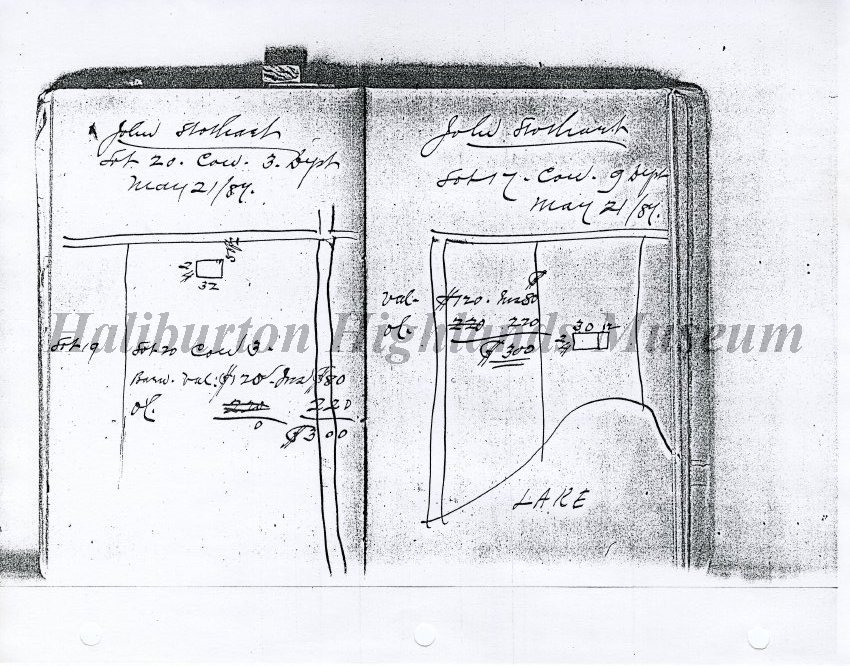 John Stothart
Lot 20. Con. 3. Dept
May 21/87.
24
32
Lot 19
Lot 20 Con 3.
Barn. Val. $120 - Ins $80
ol. 220 220
0
$300
John Stothart
Lot 17. Con. 9 Dept
May 21/87.
Val. $120. Ins 80
ol. 220 220
$300
30 12
24
LAKE
Haliburton Highlands Museum